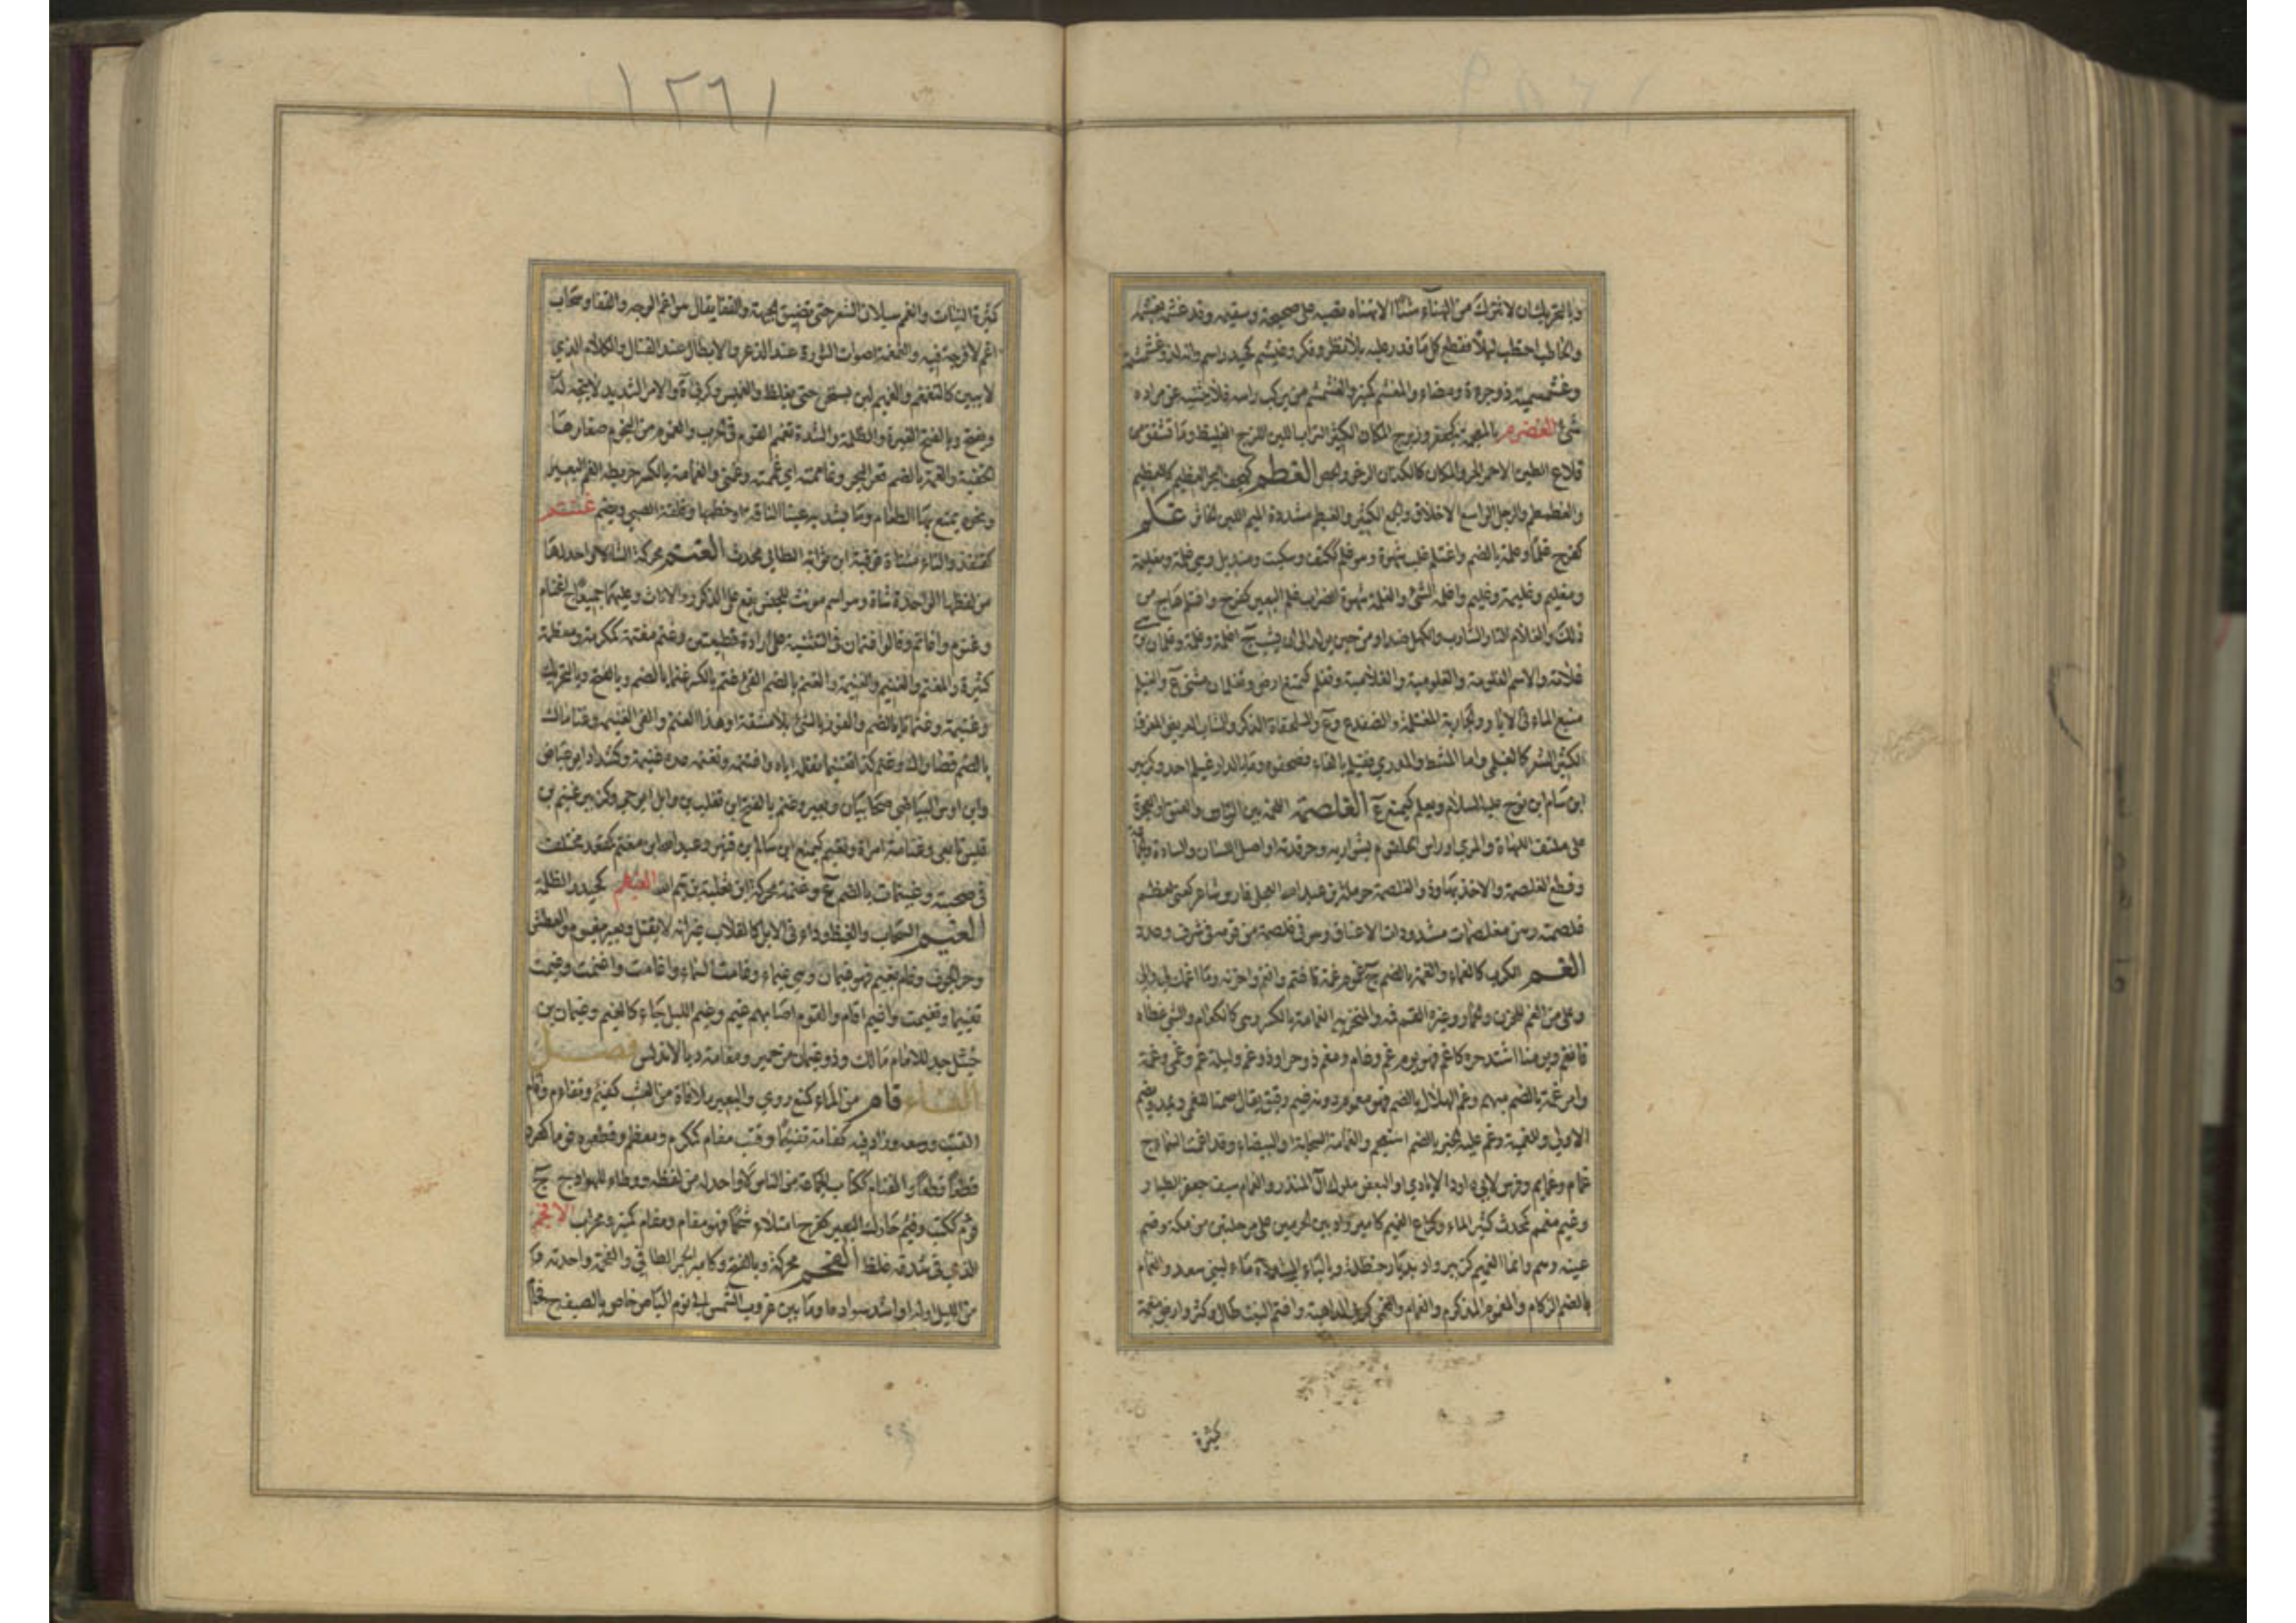 وبالتحريك ان لا تترك من الهناء شيئا الا هنأه فصبه على صحيحه وسقيمه وقد غشم
والحاطب احتطب ليلا فقطع كل ما قدر عليه بلا نظر وفكر وغيشم كحيدر اسم وانه لذو غشمشمة
وغشمشمية ذو جرءة ومضاء والمغشم كمنبر والغشمشم من يركب راسه فلا يثنيه عن مراده
شئ الغضرم بالمعجمة كجعفر وزبرج المكان الكثير التراب اللين اللزج الغليظ وما تشقق من
قلاع الطين الاحمر الحر والمكان كالكذان الرخو والجص الغطم كهجف البحر العظيم كالغطيم
والغطمطم والرجل الواسع الاخلاق والجمع الكثير والغيطم مشددة الميم اللبن الخاثر غلم
كفرح غلما وغلمة بالضم واغتلم غلب شهوة وهو غلم ككتف وسكيت ومنديل وهي غلمة ومغليمة
ومغليم وغليمة وغليم واغلمه الشئ والغلمة شهوة الضراب غلم البعير كفرح واغتلم هاج من
ذلك والغلام الطار الشارب والكهل ضد او من حين يولد الى ان يشب ج اغلمة وغلمة وغلمان وهي
غلامة والاسم الغلومة والغلومية والغلامية وتغلم كيمنع ارض وتغلمان مثنى ع والغيلم
منبع الماء في الابار والجارية المغتلمة والضفدع وع والسلحفاة الذكر والشاب العريض المفرق
الكثير الشعر كالغيلمي واما المشط والمدري فغيلم بالفاء فصحفه وما بالدار غيلم احد وكزبير
ابن سام ابن نوح عليه السلام ويغلم كيمنع ع الغلصمة اللحم بين الراس والعنق او العجرة
على ملتقى اللهاة والمرئ او راس الحلقوم بشواربه وحرقدته او اصل اللسان والسادة والجماعة
وقطع الغلصمة والاخذ بها وذو الغلصمة حرملة بن عبد الله العجلي فارس شاعر كني لعظم
غلصمته وهن مغلصمات مشدودات الاعناق وهو في غلصمة من قومه في شرف وعدد
الغم الكرب كالغماء والغمة بالضم ج غموم غمه فاغتم وانغم واحزنه وما اغمك لي والي
وعلي من الغم للحزن والحمار وغيره القم فمه والمنخريه الغمامة بالكسر وهي كالكعام والشئ غطاه
فانغم ويومنا اشتد حره كاغم فهو يوم غم وغام ومغم ذو حر او ذو غم وليلة غم وغمى وغمة
وامر غمة بالضم مبهم وغم الهلال بالضم فهو مغموم دونه غيم رقيق يقال صمنا للغمى وتمد ويضم
الاولى وللغمية وغم عليه الخبر بالضم استعجم والغمامة السحابة او البيضاء وقد اغمت السماء ج
غمام وغمايم وفرس لابي داود الايادي او لبعض ملوك ال المنذر والغمام سيف جعفر الطيار
وغيم مغمم كمحدث كثير الماء وكراع الغميم كامير واد بين الحرمين على مرحلتين من مكة وضم
غينه وهم وانما الغميم كزبير واد بديار حنظلة وماء لبني سعد والغمام
بالضم الزكام والمغموم المزكوم والغمى كربى الداهية واغتم النبت طال وكثر وارض مغمة
كثرة
١٢٦١
كثيرة النبات والغمم سيلان الشعر حتى تضيق الجبهة والقفا يقال هو اغم الوجه والقفا وسحاب
اغم لا فرجة فيه والغمغمة اصوات الثيران عند الذعر والابطال عند القتال والكلام الذي
لا يبين كالتغمغم والغميم لبن يسخن حتى يغلظ والغميس وكرفاة والامر الشديد لا يتجه له
ويفتح وبالفتح الغبرة والظلمة والشدة تغم القوم في الحرب والغموم من النجوم صغارها
الخفية والغمة بالضم قعر النحي وغاممته اي غممته وغمني والغمامة بالكسر خريطة لفم البعير
ونحوه يمنع بها الطعام وما يشد به عينا الناقة او خطمها وقلفة الصبي ويضم غنتم
كقنفذ والتاء مثناة فوقية ابن ثوابة الطائي محدث الغنم محركة الشاء لا واحد لها
من لفظها الواحدة شاة وهو اسم مونث للجنس يقع على الذكور والاناث وعليهما جميعا ج اغنام
وغنوم واغانم وقالوا غنمان في التثنية على ارادة قطيعين وغنم مغنمة كمكرمة ومعظمة
كثيرة والمغنم والغنيم والغنيمة والغنم بالضم الفئ غنم بالكسر غنما بالضم وبالفتح وبالتحريك
وغنيمة وغنمانا بالضم والفوز بالشئ بلا مشقة او هذا الغنم والفئ الغنيمة وغناماك
بالضم قصاراك وغنمه كذا تغنيما نفله اياه واغتنمه وتغنمه عده غنيمة وكشداد ابن
وابن اوس البياضي صحابيان وبعير وغنم بالفتح ابن تغلب بن وايل ابو حي وكزبير غنيم بن
قيس تابعي وغنامة امراة ويغنم كيمنع ابن سالم بن قنبر وعبد الله بن مغنم كمقعد مختلف
في صحبته وغنيمات بالضم ع وغنمة محركة ابن ثعلبة بن تيم الله الغيهم كحيدر الظلمة
الغيم السحاب والغيظ وداء في الابل كالقلاب غير انه لا يقتل وبعير مغيوم والعطش
وحر الجوف وغام يغيم فهو غيمان وهي غيمى وغامت السماء واغامت واغيمت وغيمت
تغييما وتغيمت واغيم اقام والقوم اصابهم غيم وغيم الليل جاء كالغيم وغيمان بن
خثيل جد للامام مالك وذو غيمان من حمير ومغامة د بالاندلس فصل
الفاء فام من الماء كمنع روي والبعير ملا فاه من العشب كفئم وتفاءم وافام
القتب وسعه وزاد فيه كفامه تفئيما وقتب مفام كمكرم ومعظم وقطعوه فوما كصرد
قطعا قطعا والفئام ككتاب الجماعة من الناس لا واحد له من لفظه ووطاء للهوادج ج
فؤم ككتب وفئم حارك البعير كفرح امتلاء شحما فهو مفام ومفام كمنبر ومحراب الافجم
الذي في شدقه غلظ الفحم محركة وبالفتح وكامير الجمر الطافي والفحمة واحدته و
من الليل اوله او اشد سواده او ما بين غروب الشمس الى نوم الناس خاص بالصيف ج فحام